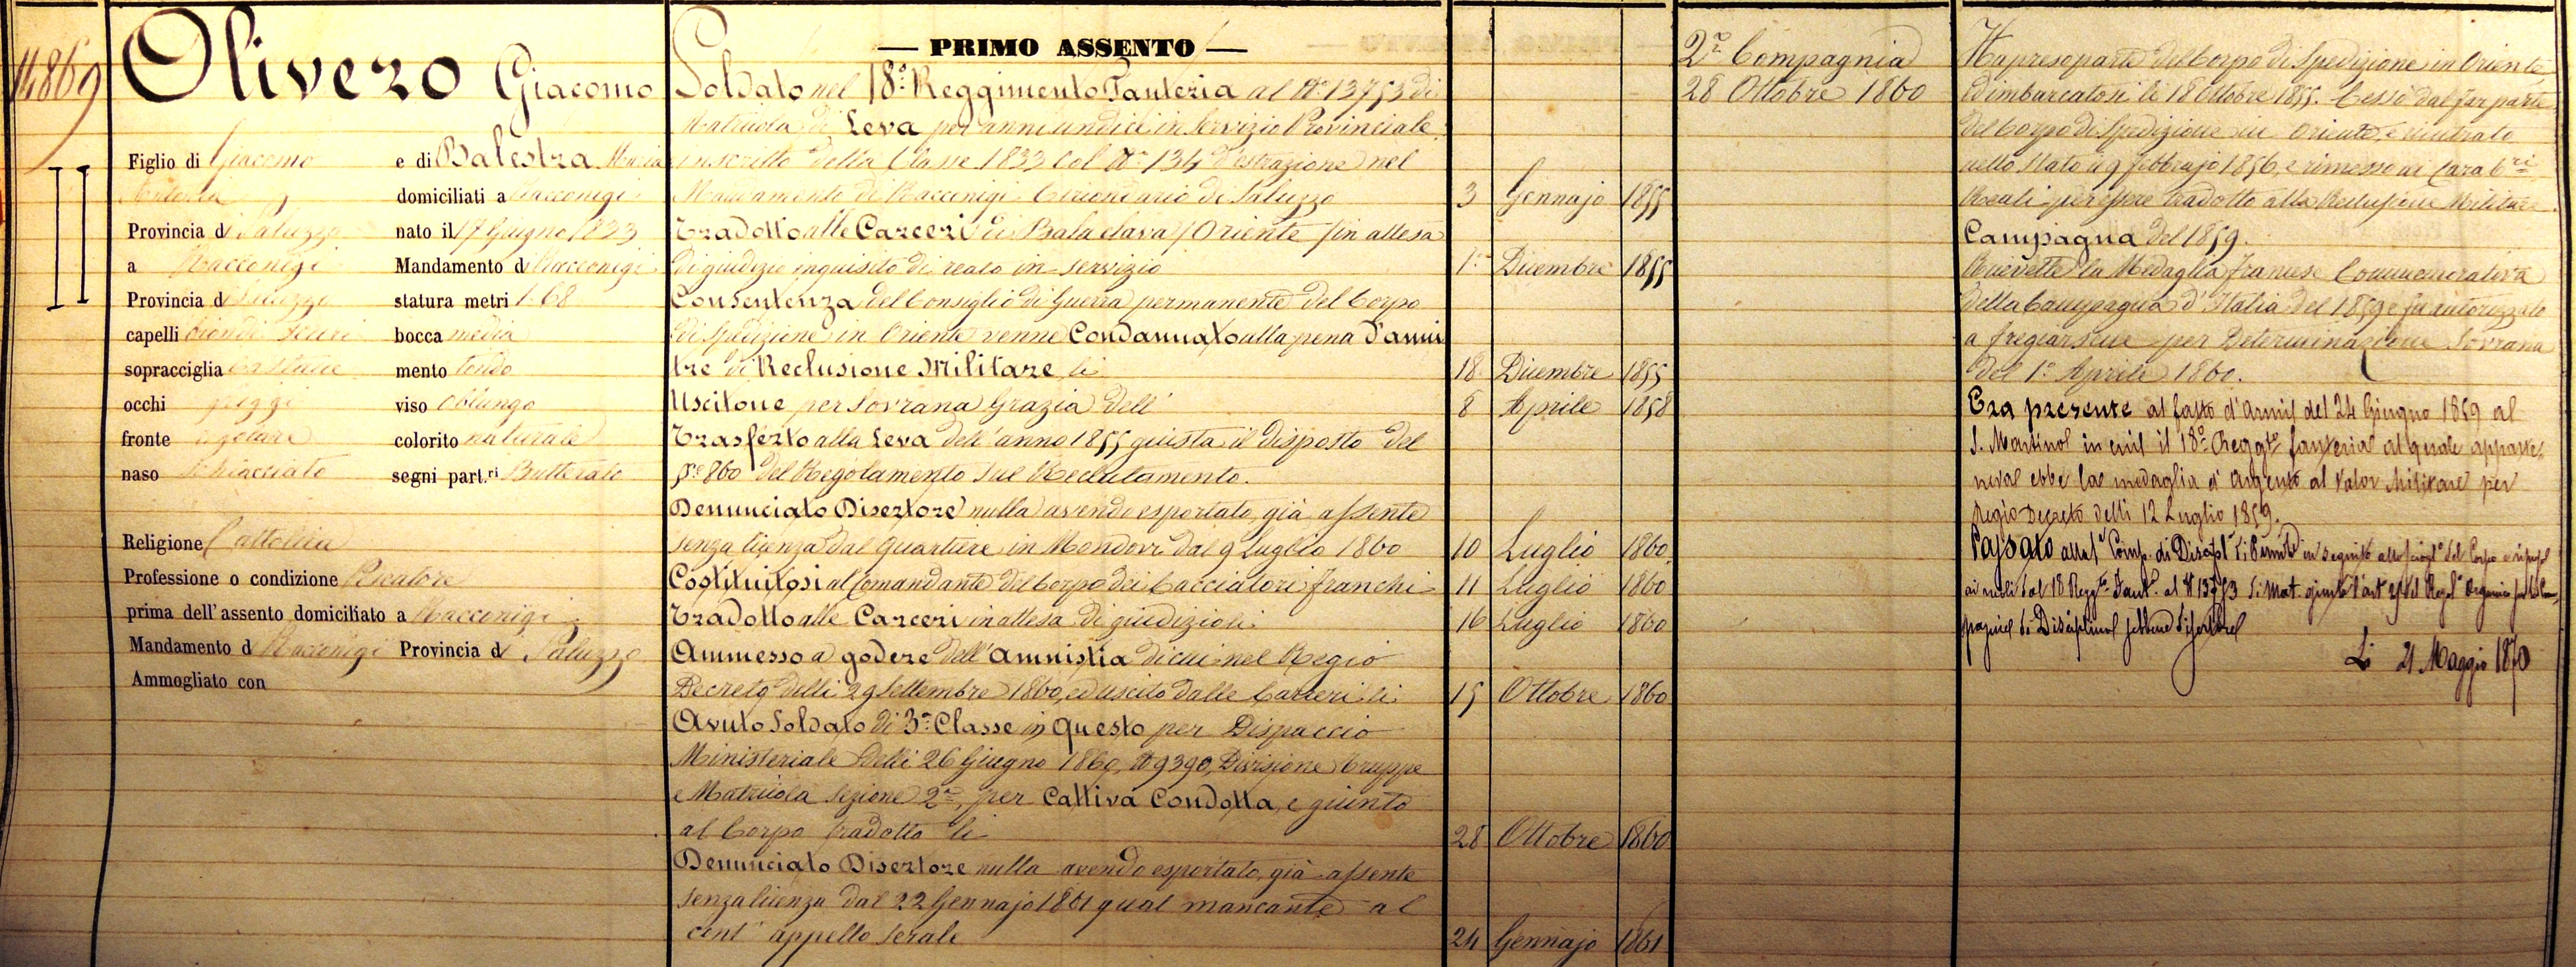 14869
Olivero Giacomo
Figlio di Giacomo e di Balestra Maria
Antonia domiciliati a Racconigi
Provincia di Saluzzo nato il 17 Giugno 1833
a Racconigi Mandamento di Racconigi
Provincia di Saluzzo statura metri 1.68
capelli biondi scuri bocca media
sopracciglia castane mento tondo
occhi griggi viso oblungo
fronte regolare colorito naturale
naso schiacciato segni part.ri Butterato
Religione Cattolica
Professione o condizione
prima dell'assento domiciliato a Racconigi
Mandamento di Racconigi Provincia di Saluzzo
Ammogliato con
— PRIMO ASSENTO —
Soldato nel 18° Reggimento Fanteria al N° 13753 di
Matricola di Leva per anni undici in servizio Provinciale
inscritto della Classe 1833 col N° 134 d'estrazione nel
Mandamento di Racconigi Circondario di Saluzzo 3 Gennajo 1855
Tradotto alle Carceri di Balaclava (Oriente) in attesa
di giudizio inquisito di reato in servizio 1° Dicembre 1855
Con sentenza del Consiglio di Guerra permanente del Corpo
di Spedizione in Oriente venne Condannato alla pena d'anni
tre di Reclusione Militare li 18 Dicembre 1855
Uscitone per Sovrana Grazia dell' 8 Aprile 1858
Trasferto alla Leva dell'anno 1855 giusta il disposto del
§° 860 del Regolamento sul Reclutamento.
Denunciato Disertore nulla avendo esportato, già assente
senza licenza dal quartiere in Mondovì dal 9 Luglio 1860 10 Luglio 1860
Costituitosi al Comandante del Corpo dei Cacciatori franchi 11 Luglio 1860
Tradotto alle Carceri in attesa di giudizio li 16 Luglio 1860
Ammesso a godere dell'Amnistia di cui nel Regio
Decreto delli 29 Settembre 1860, ed uscito dalle Carceri li 15 Ottobre 1860
Avuto Soldato di 3a Classe in Questo per Dispaccio
Ministeriale delli 26 Giugno 1860, N° 9390, Divisione Truppe
e Matricola Sezione 2a, per Cattiva Condotta, e giunto
al Corpo tradotto li 28 Ottobre 1860
Denunciato Disertore nulla avendo esportato, già assente
senza licenza dal 22 Gennajo 1861 qual mancante al
cont° appello serale 24 Gennajo 1861
2a Compagnia
28 Ottobre 1860
Ha preso parte del Corpo di Spedizione in Oriente,
ed imbarcatosi li 18 Ottobre 1855. Cessò dal far parte
del Corpo di Spedizione in Oriente, e rientrato
nello Stato li 9 febbrajo 1856, e rimesso ai Carab.ri
Reali per essere tradotto alla Reclusione Militare.
Campagna del 1859.
Ricevette la Medaglia francese Commemorativa
della Campagna d'Italia del 1859 e fu autorizzato
a fregiarsene per Determinazione Sovrana
del 1° Aprile 1860.
Era presente al fatto d'armi del 24 Giugno 1859 al
S. Martino in cui il 18° Regg.to fanteria al quale apparte-
neva ebbe la medaglia d'Argento al Valor Militare per
Regio Decreto delli 12 Luglio 1859.
Passato alla Comp. di Discipl. in seguito allo sciogl.to del Corpo
18 Regg.to Fant. al N 13753 di Mat. giusta l'art
di Disciplina
Li 21 Maggio 1870